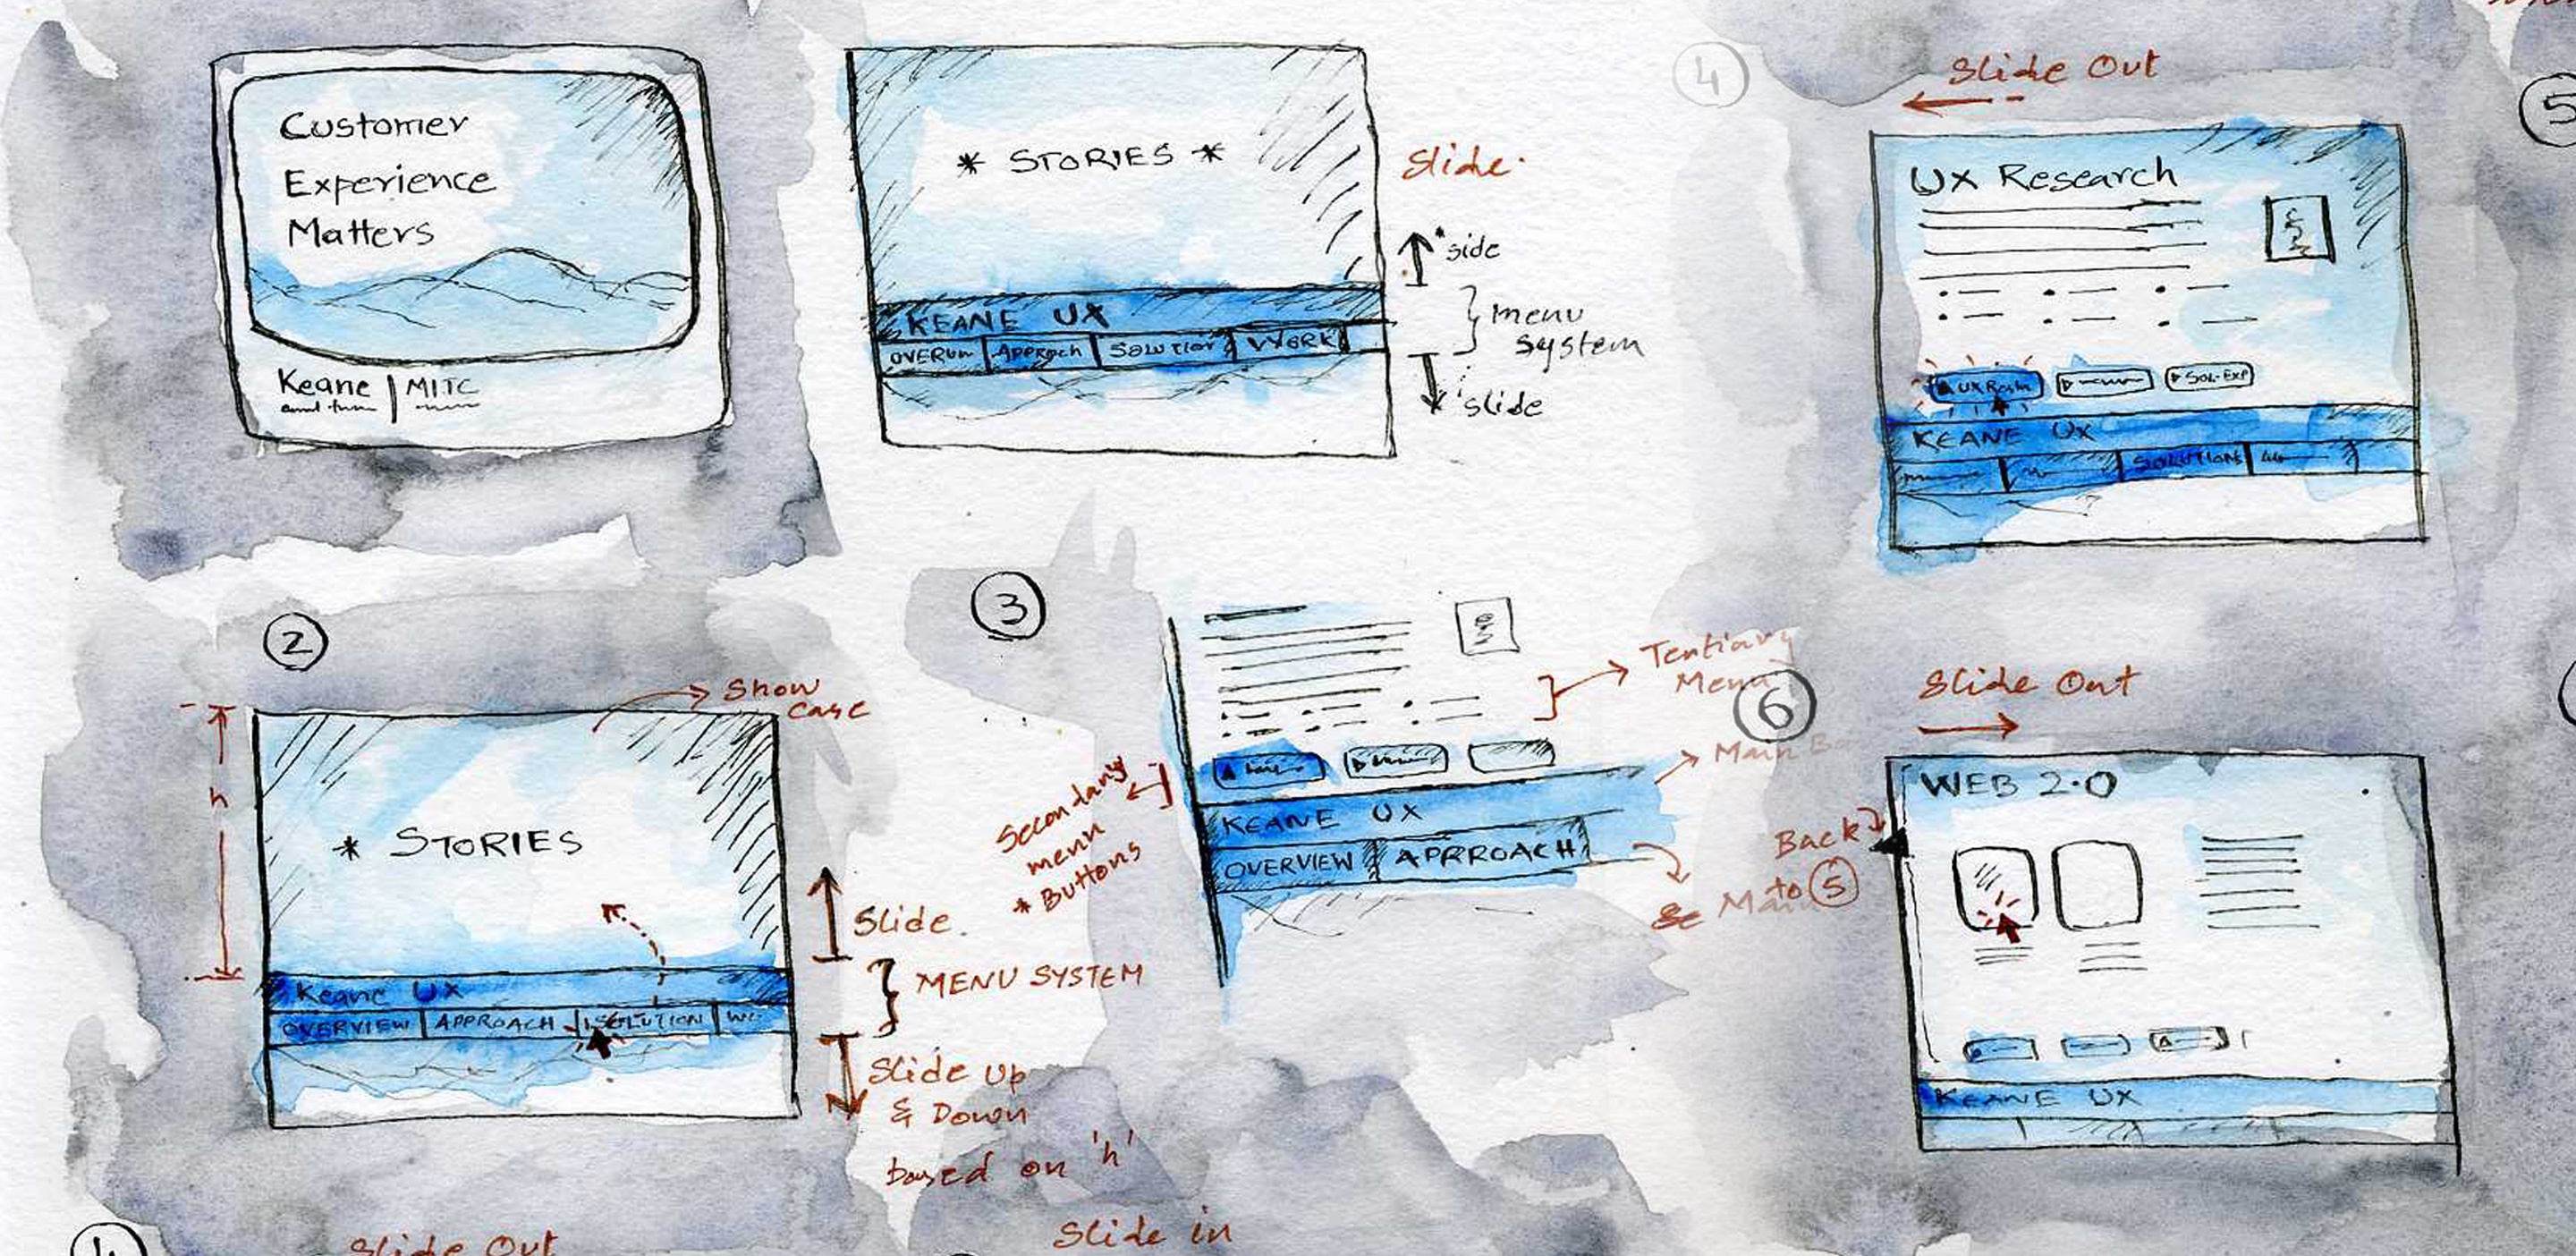 Customer
Experience
Matters
Keane | MITC
* STORIES *
KEANE UX
OVERVIW APPROACH SOLUTION WORK
Slide.
*side
menu
system
*slide
4
Slide Out
UX Research
UX Resh
SOL-EXP
KEANE UX
SOLUTIONS
5
2
h
Show
case
* STORIES
Keane UX
OVERVIEW APPROACH SOLUTION WO
Slide.
MENU SYSTEM
Slide Up
& Down
based on 'h'
3
Tentiary
Menu
Main
Secondary
menu
* Buttons
KEANE UX
OVERVIEW APRROACH
Main
6
Slide Out
Back
to 5
WEB 2.0
KEANE UX
4
Slide Out
Slide in